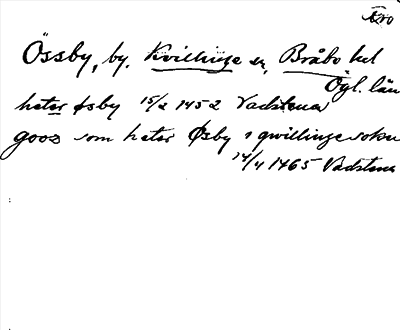 Össby, by. Kvillinge sn, Bråbo hd
Ögl. län
heter øsby 15/2 1452 Vadstena
goos som heter Øsby i qwillinge sokn
14/4 1465 Vadstena